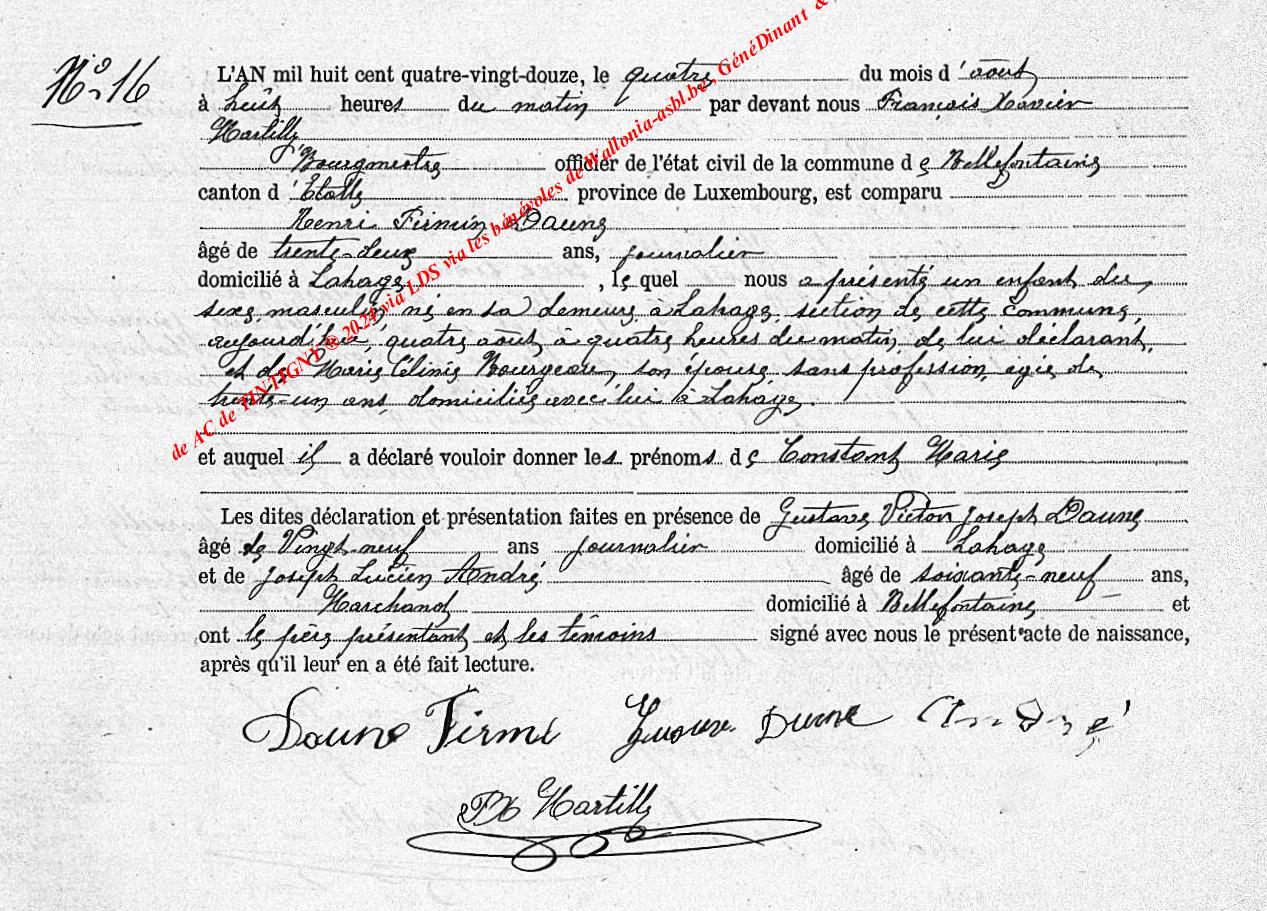 N° 16
L'AN mil huit cent quatre-vingt-douze, le quatre du mois d'août
à huit heures du matin par devant nous François Xavier
Martilly
Bourgmestre officier de l'état civil de la commune de Bellefontaine
canton d'Etalle province de Luxembourg, est comparu
Henri Firmin Daune
âgé de trente-deux ans, journalier
domicilié à Lahage, lequel nous a présenté un enfant du
sexe masculin, né en sa demeure à Lahage, section de cette commune,
aujourd'hui, quatre août à quatre heures du matin, de lui déclarant,
et de Marie Célinie Bourgeois, son épouse, sans profession, agée de
trente-un ans, domiciliée avec lui à Lahage.
et auquel il a déclaré vouloir donner les prénoms de Constant Marie
Les dites déclaration et présentation faites en présence de Gustave Victor Joseph Daune
âgé de Vingt-neuf ans journalier domicilié à Lahage
et de Joseph Lucien André âgé de soixante-neuf ans,
Marchand domicilié à Bellefontaine et
ont le père présentant et les témoins signé avec nous le présent acte de naissance,
après qu'il leur en a été fait lecture.
Daune Firmi Daune André
FX Martilly
de AC de TINTIGNY ® 2024 via LDS via les bénévoles de Wallonia-asbl.be, GénéDinant &